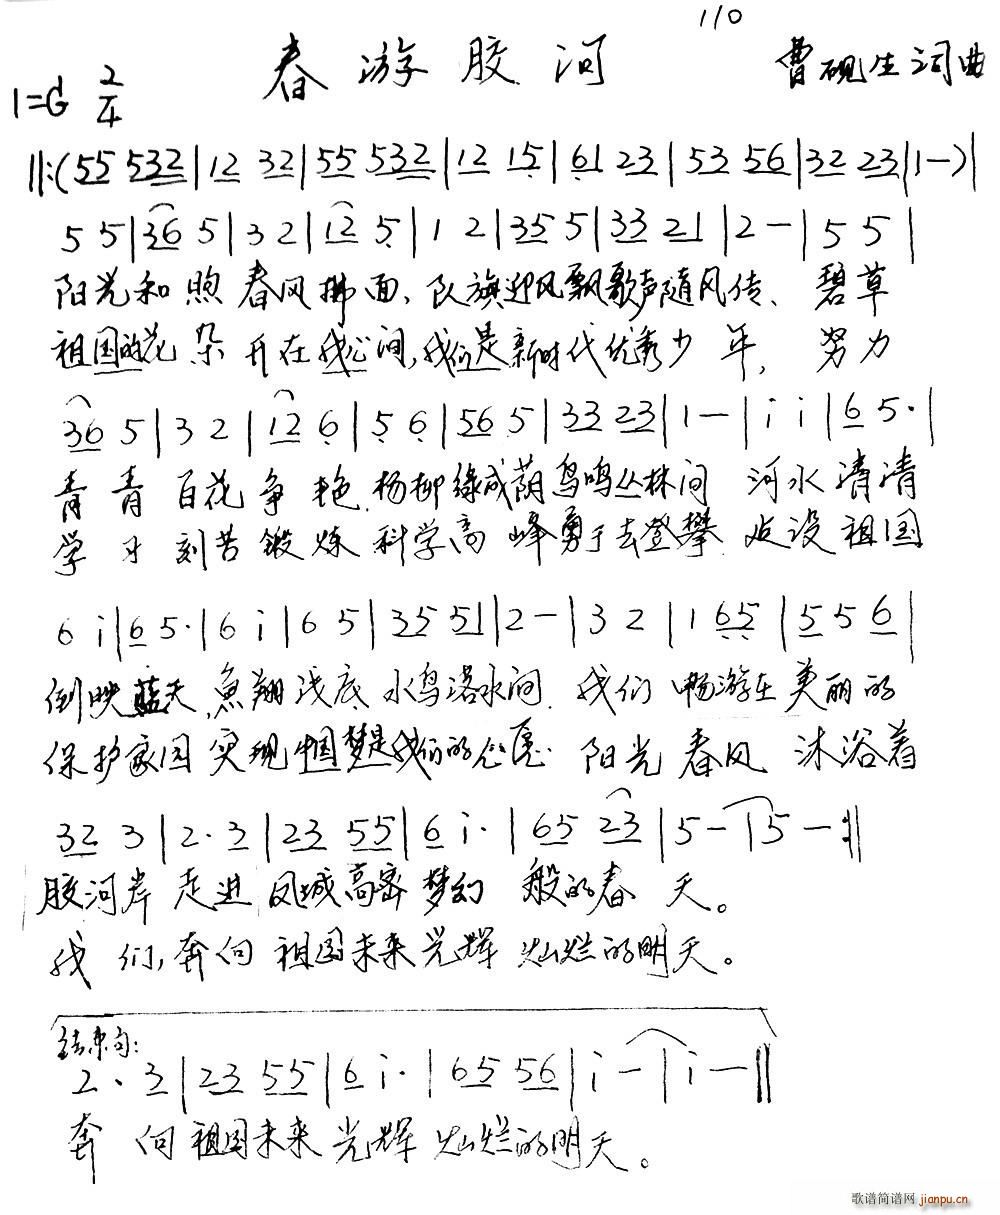 110
春游胶河
曹砚生词曲
1=G 2/4
||:(55 532|12 32|55 532|12 15|61 23|53 56|32 23|1-)|
5 5|36 5|3 2|12 5|1 2|35 5|33 21|2-|5 5|
阳光和煦春风拂面,队旗迎风飘歌声随风传、碧草
祖国的花朵开在我心间,我们是新时代优秀少年,努力
36 5|3 2|12 6|5 6|56 5|33 23|1-|i i|6 5·|
青青百花争艳杨柳绿成荫鸟鸣丛林间河水清清
学习刻苦锻炼科学高峰勇于去登攀建设祖国
6 i|6 5·|6 i|6 5|35 5|2-|3 2|1 65|5 5 6|
倒映蓝天,鱼翔浅底水鸟落水间.我们畅游在美丽的
保护家园实现中国梦是我们的心愿阳光春风沐浴着
32 3|2·3|23 55|6 i·|65 23|5-|5-:||
胶河岸走进凤城高密梦幻般的春天。
我们,奔向祖国未来光辉灿烂的明天。
结束句:
2·3|23 55|6 i·|65 56|i-|i-||
奔向祖国未来光辉灿烂的明天。
歌谱简谱网 jianpu.cn